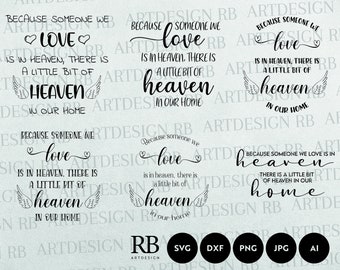 BECAUSE SOMEONE WE
LOVE
IS IN HEAVEN, THERE IS
A LITTLE BIT OF
HEAVEN
IN OUR HOME
BECAUSE SOMEONE WE
love
IS IN HEAVEN, THERE IS
A LITTLE BIT OF
heaven
IN OUR HOME
BECAUSE SOMEONE WE
love
IS IN HEAVEN, THERE IS
A LITTLE BIT OF
heaven
IN OUR HOME
BECAUSE SOMEONE WE
love
IS IN HEAVEN, THERE IS
A LITTLE BIT OF
heaven
IN OUR HOME
Because someone we
love
is in heaven, there is
a little bit of
heaven
in our home
BECAUSE SOMEONE WE LOVE IS IN
heaven
THERE IS A LITTLE BIT
OF HEAVEN IN OUR
home
RB
ARTDESIGN
SVG
DXF
PNG
JPG
AI
ARTDESIGN RB